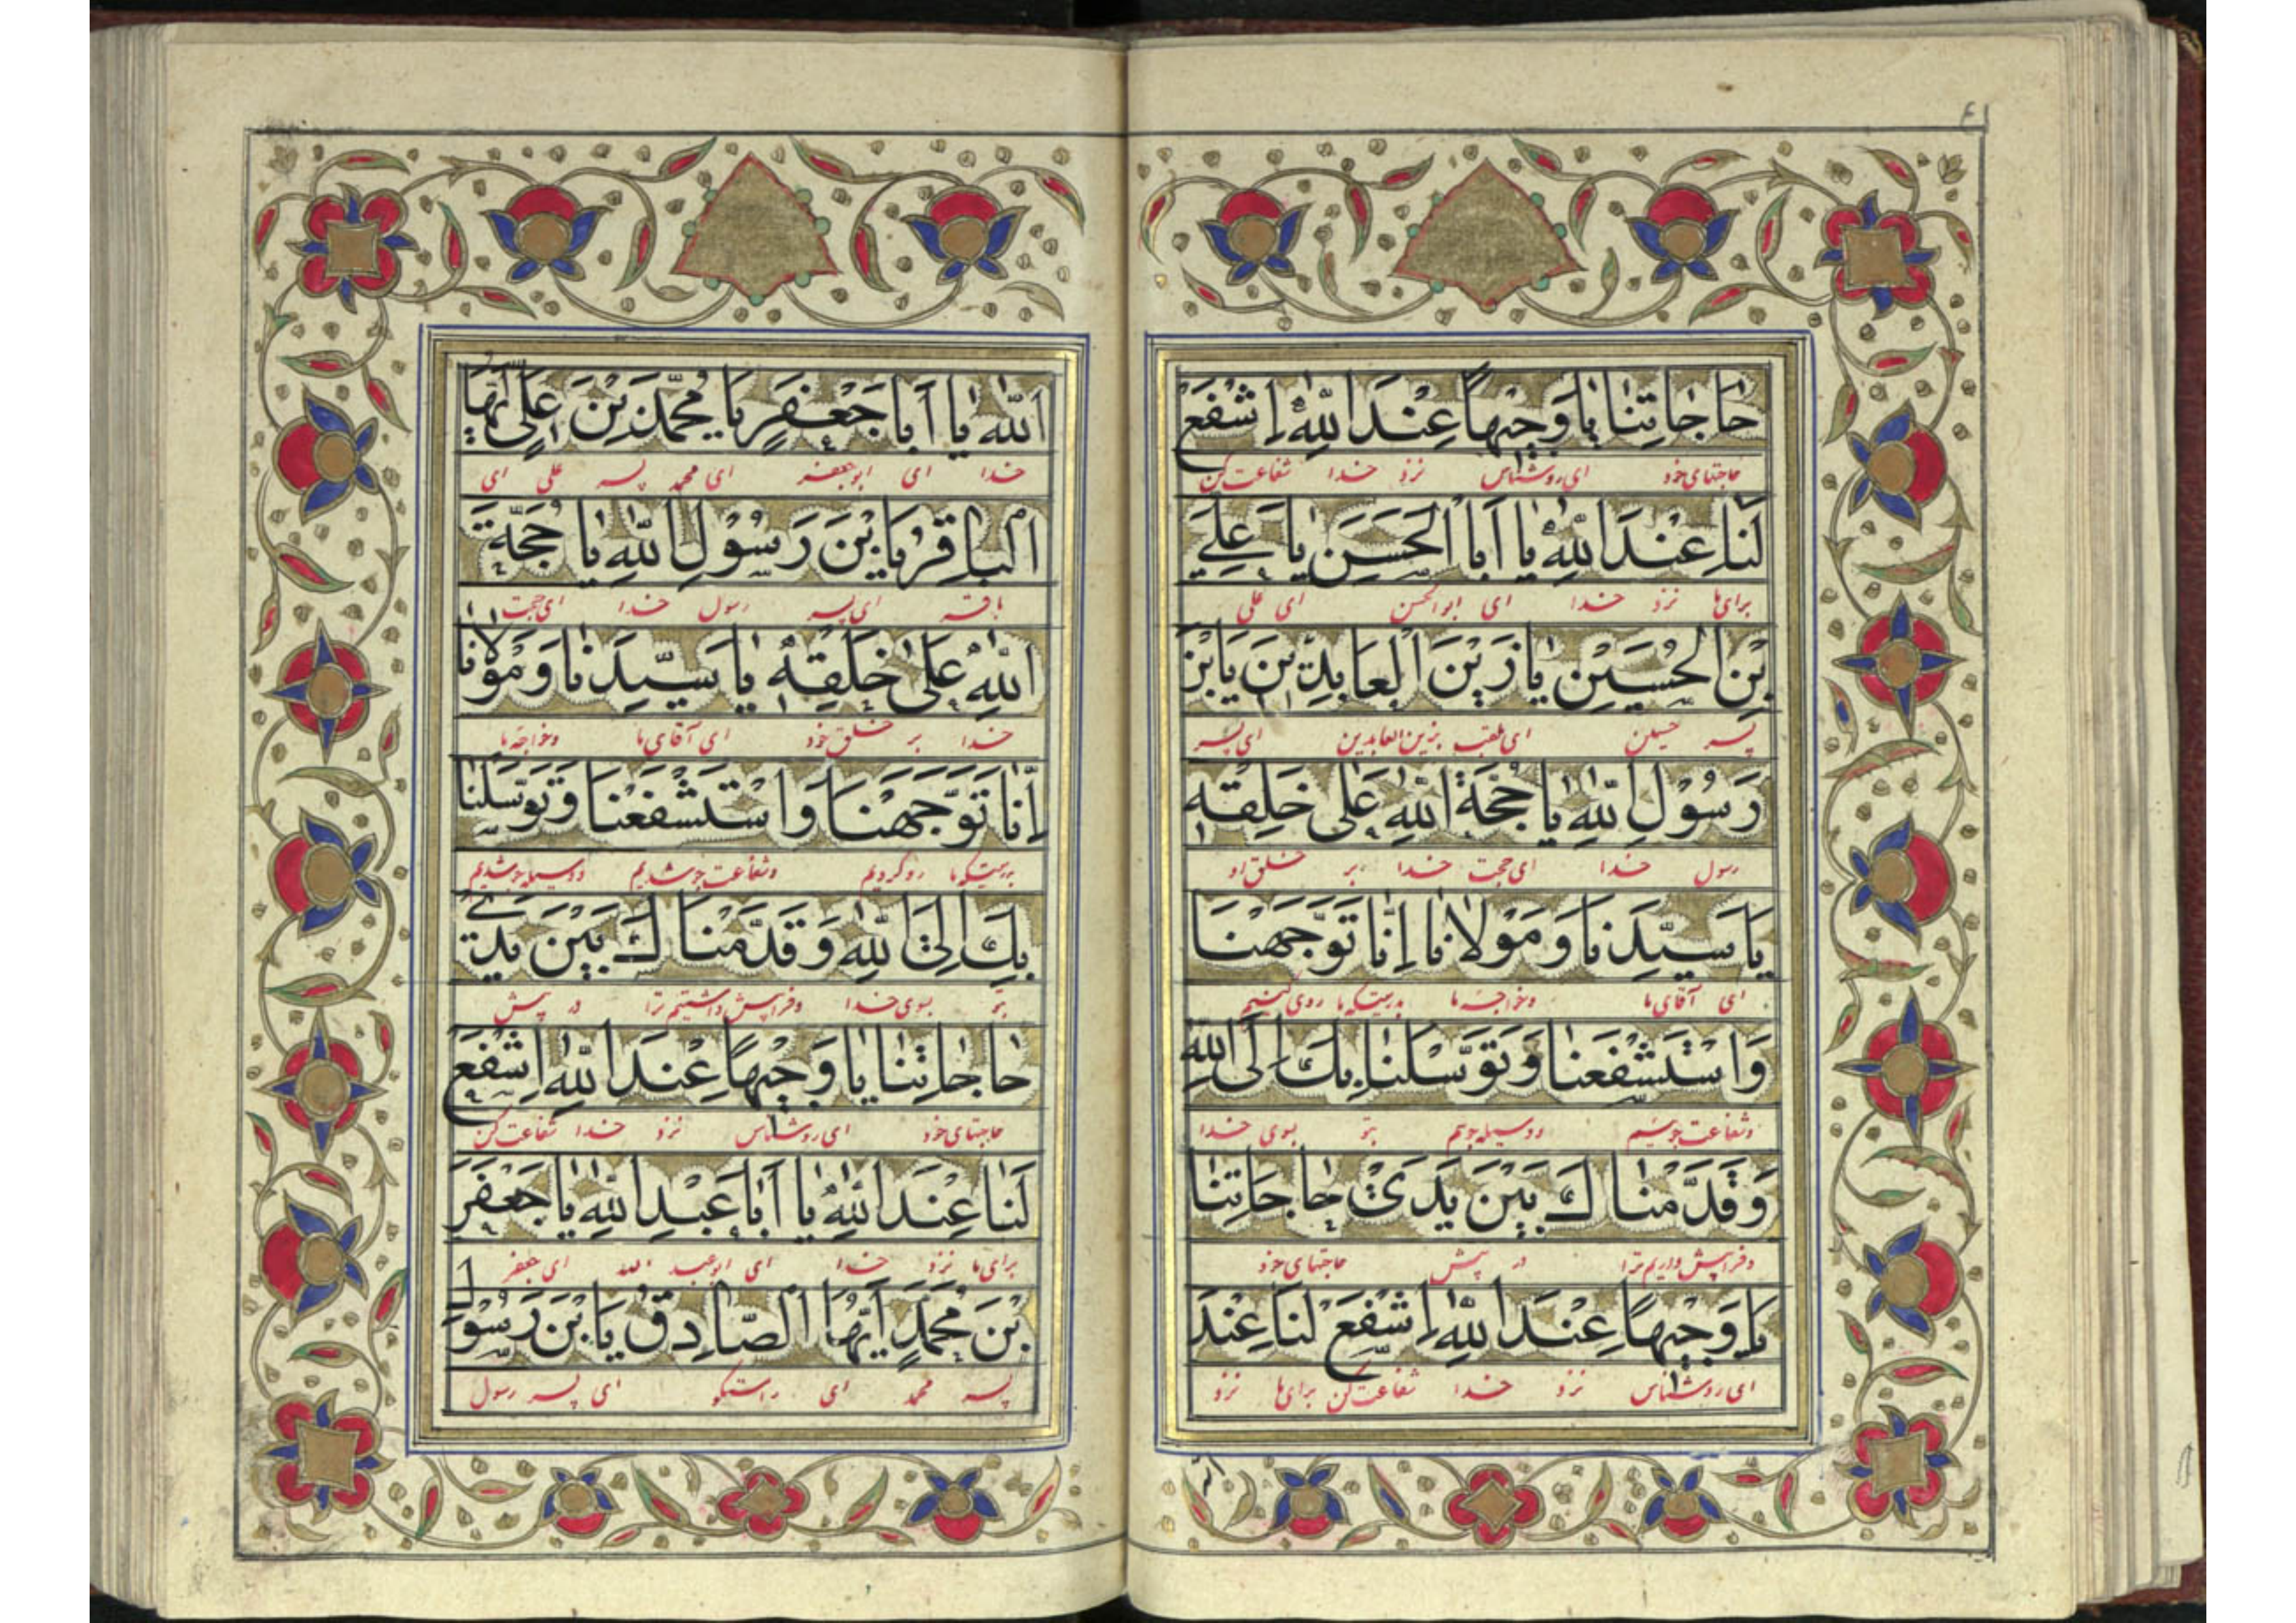 حاجاتِنا يا وَجيهًا عِنْدَ اللّٰهِ اِشْفَعْ
حاجتهای خود ای روشناس نزد خدا شفاعت کن
لَنا عِنْدَ اللّٰهِ يا اَبَا الْحَسَنِ يا عَلِيَّ
برای ما نزد خدا ای ابوالحسن ای علی
بْنَ الْحُسَيْنِ يا زَيْنَ الْعابِدينَ يَا بْنَ
پسر حسین ای ملقب بزین العابدین ای پسر
رَسُولِ اللّٰهِ يا حُجَّةَ اللّٰهِ عَلىٰ خَلْقِهِ
رسول خدا ای حجت خدا بر خلق او
يا سَيِّدَنا وَ مَوْلانا اِنّا تَوَجَّهْنا
ای آقای ما وخواجه ما بدرستیکه ما روی کنیم
وَاسْتَشْفَعْنا وَتَوَسَّلْنا بِكَ اِلَى اللّٰهِ
وشفاعت جوئیم ووسیله جوئیم بتو بسوی خدا
وَقَدَّمْناكَ بَيْنَ يَدَيْ حاجاتِنا
وفراپیش داریم ترا در پیش حاجتهای خود
يا وَجيهًا عِنْدَ اللّٰهِ اِشْفَعْ لَنا عِنْدَ
ای روشناس نزد خدا شفاعت کن برای ما نزد
اللّٰه
اللّٰهِ يا اَبا جَعْفَرٍ يا مُحَمَّدَ بْنَ عَلِيٍّ اَيُّهَا
خدا ای ابوجعفر ای محمد پسر علی ای
الْباقِرُ يَا بْنَ رَسُولِ اللّٰهِ يا حُجَّةَ
باقر ای پسر رسول خدا ای حجت
اللّٰهِ عَلىٰ خَلْقِهِ يا سَيِّدَنا وَ مَوْلانا
خدا بر خلق خود ای آقای ما وخواجه ما
اِنّا تَوَجَّهْنا وَاسْتَشْفَعْنا وَتَوَسَّلْنا
بدرستیکه ما رو کردیم وشفاعت جو شدیم ووسیله جو شدیم
بِكَ اِلَى اللّٰهِ وَقَدَّمْناكَ بَيْنَ يَدَيْ
بتو بسوی خدا وفراپیش داشتیم ترا در پیش
حاجاتِنا يا وَجيهًا عِنْدَ اللّٰهِ اِشْفَعْ
حاجتهای خود ای روشناس نزد خدا شفاعت کن
لَنا عِنْدَ اللّٰهِ يا اَبا عَبْدِ اللّٰهِ يا جَعْفَرَ
برای ما نزد خدا ای ابو عبد الله ای جعفر
بْنَ مُحَمَّدٍ اَيُّهَا الصّادِقُ يَا بْنَ رَسُولِ
پسر محمد ای راستگو ای پسر رسول